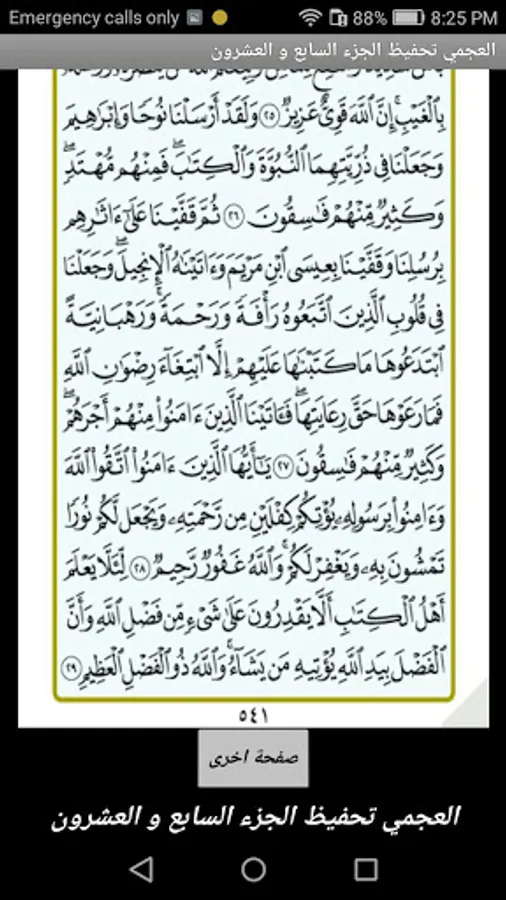 Emergency calls only
88% 8:25 PM
العجمي تحفيظ الجزء السابع و العشرون
بِالْغَيْبِ إِنَّ اللَّهَ قَوِيٌّ عَزِيزٌ ٢٥ وَلَقَدْ أَرْسَلْنَا نُوحًا وَإِبْرَاهِيمَ
وَجَعَلْنَا فِي ذُرِّيَّتِهِمَا النُّبُوَّةَ وَالْكِتَابَ ۖ فَمِنْهُم مُّهْتَدٍ ۖ
وَكَثِيرٌ مِّنْهُمْ فَاسِقُونَ ٢٦ ثُمَّ قَفَّيْنَا عَلَىٰ ءَاثَارِهِم
بِرُسُلِنَا وَقَفَّيْنَا بِعِيسَى ابْنِ مَرْيَمَ وَءَاتَيْنَاهُ الْإِنجِيلَ ۖ وَجَعَلْنَا
فِي قُلُوبِ الَّذِينَ اتَّبَعُوهُ رَأْفَةً وَرَحْمَةً ۚ وَرَهْبَانِيَّةً
ابْتَدَعُوهَا مَا كَتَبْنَاهَا عَلَيْهِمْ إِلَّا ابْتِغَاءَ رِضْوَانِ اللَّهِ
فَمَا رَعَوْهَا حَقَّ رِعَايَتِهَا ۖ فَـَٔاتَيْنَا الَّذِينَ ءَامَنُوا مِنْهُمْ أَجْرَهُمْ ۖ
وَكَثِيرٌ مِّنْهُمْ فَاسِقُونَ ٢٧ يَـٰٓأَيُّهَا الَّذِينَ ءَامَنُوا اتَّقُوا اللَّهَ
وَءَامِنُوا بِرَسُولِهِ يُؤْتِكُمْ كِفْلَيْنِ مِن رَّحْمَتِهِ وَيَجْعَل لَّكُمْ نُورًا
تَمْشُونَ بِهِ وَيَغْفِرْ لَكُمْ ۚ وَاللَّهُ غَفُورٌ رَّحِيمٌ ٢٨ لِّئَلَّا يَعْلَمَ
أَهْلُ الْكِتَابِ أَلَّا يَقْدِرُونَ عَلَىٰ شَيْءٍ مِّن فَضْلِ اللَّهِ وَأَنَّ
الْفَضْلَ بِيَدِ اللَّهِ يُؤْتِيهِ مَن يَشَاءُ ۚ وَاللَّهُ ذُو الْفَضْلِ الْعَظِيمِ ٢٩
٥٤١
صفحة اخرى
العجمي تحفيظ الجزء السابع و العشرون